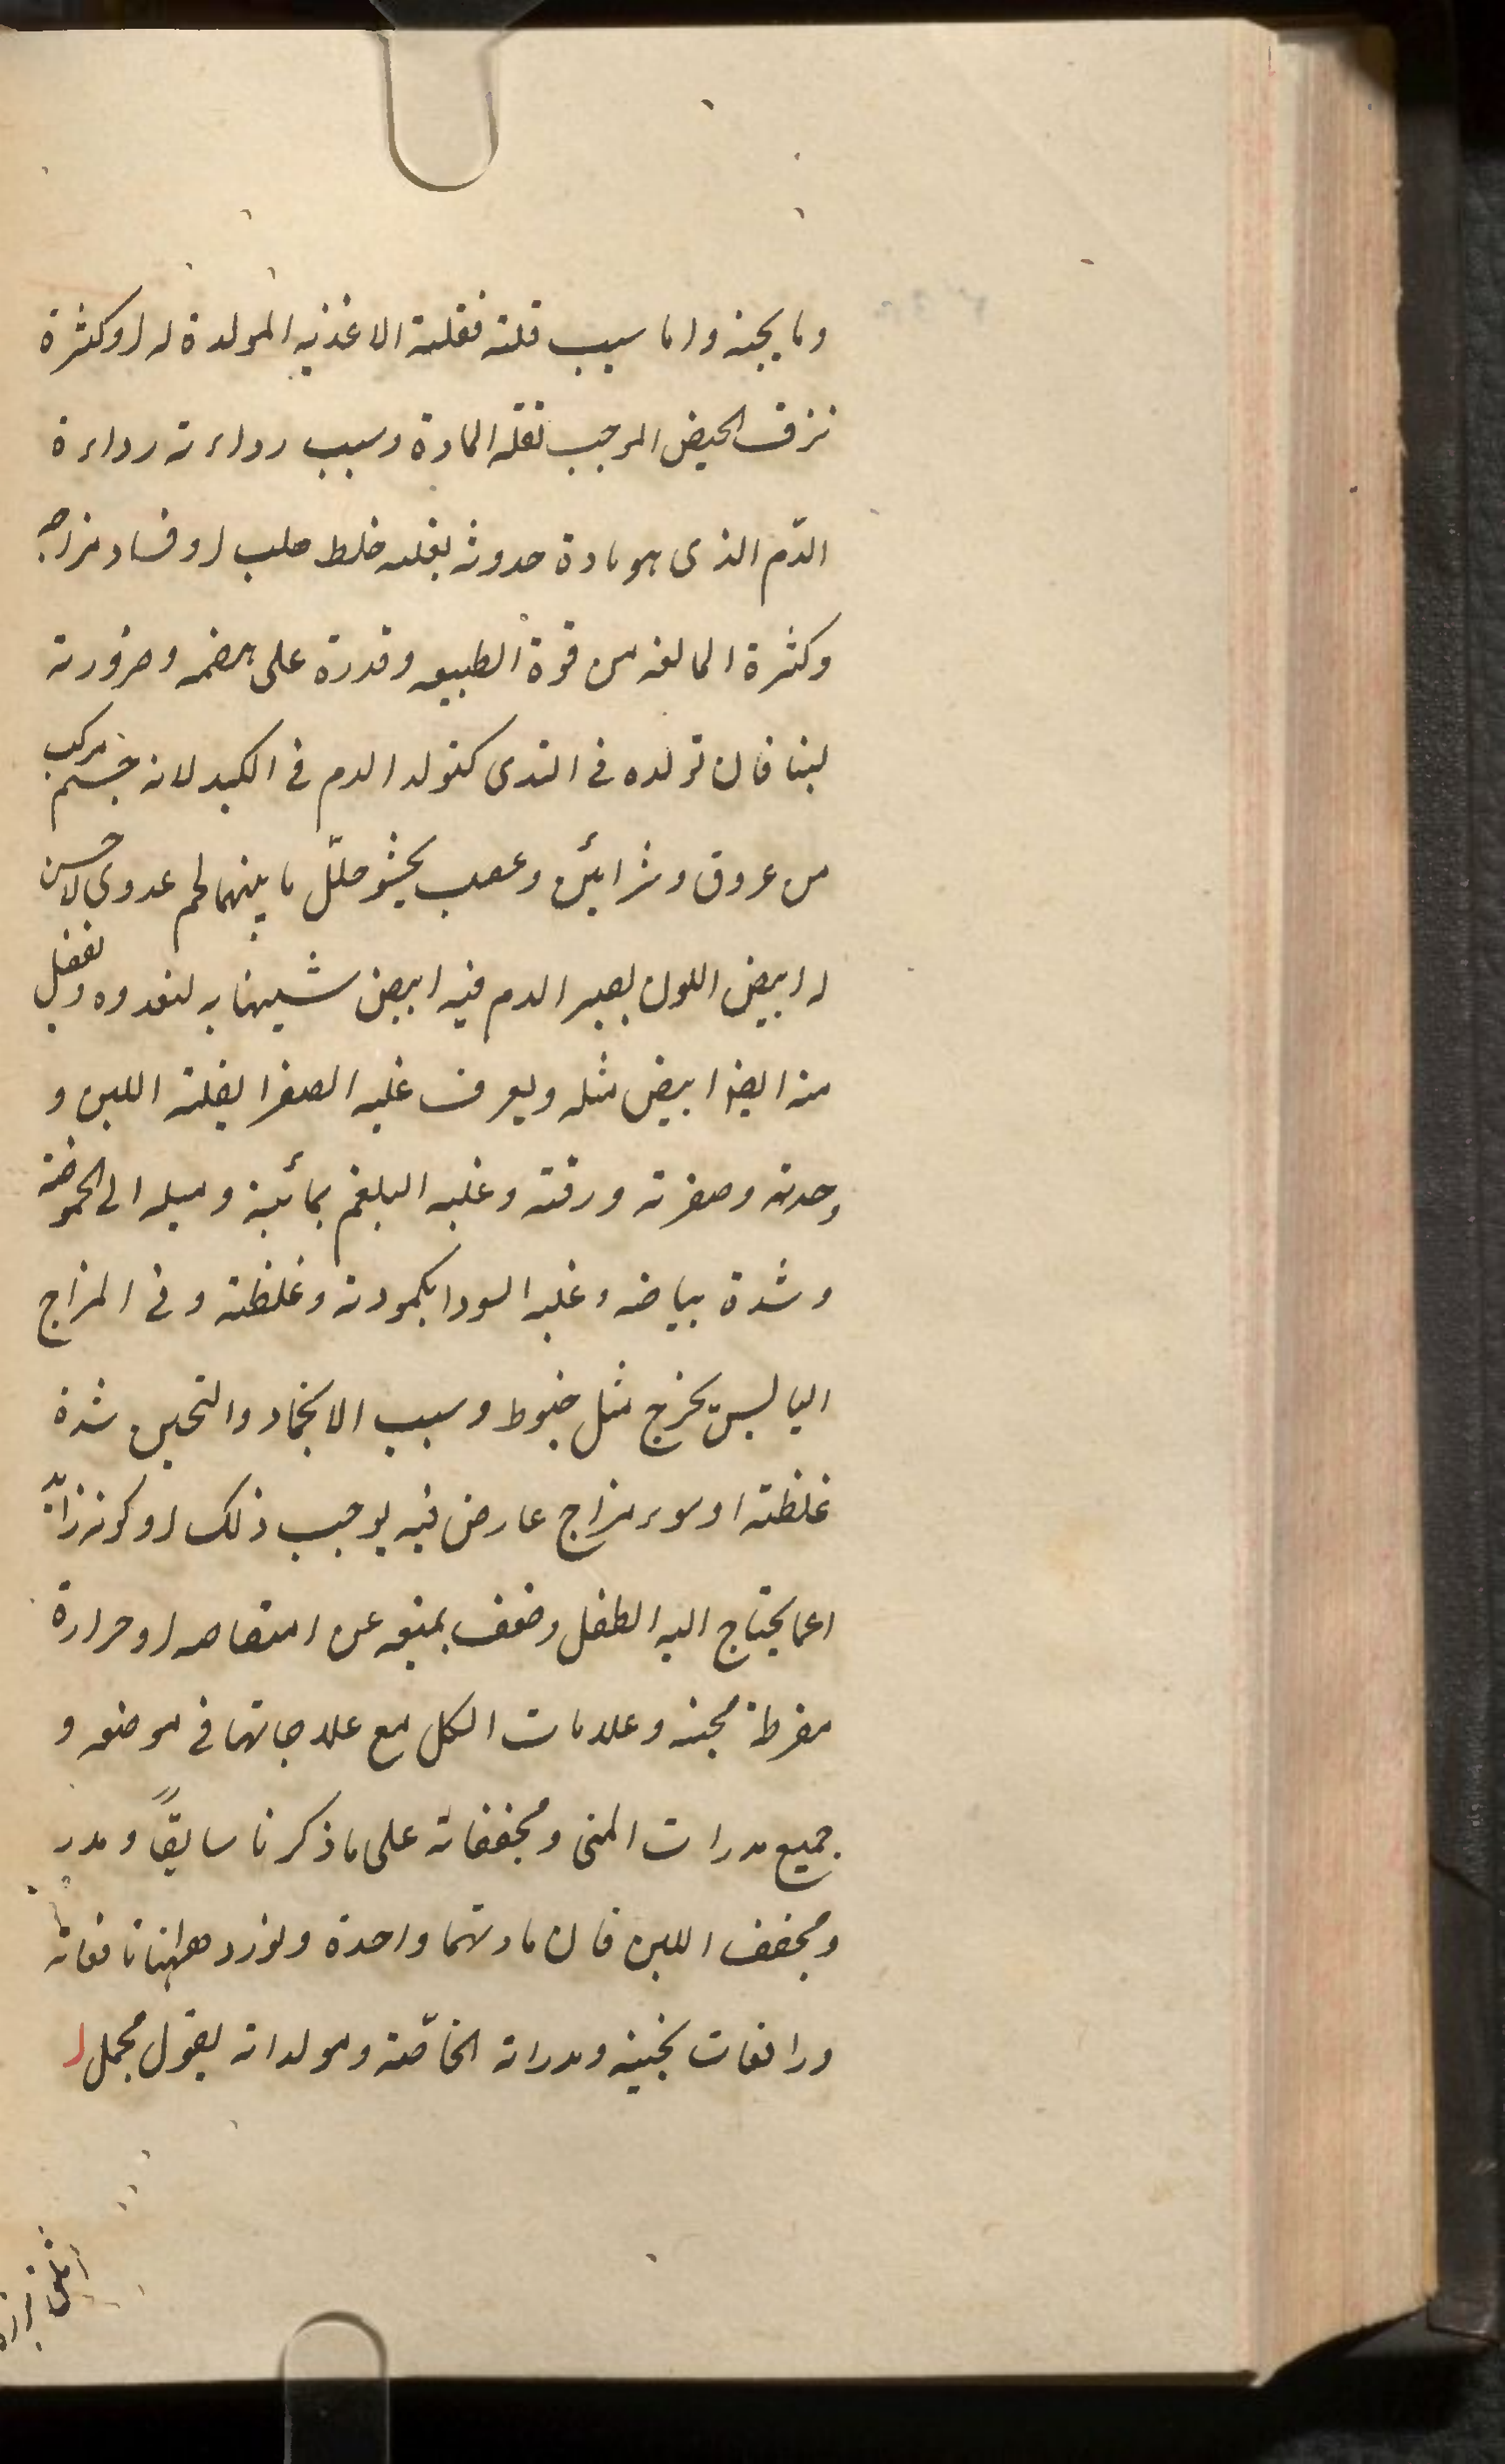 وما يجبنه واما سبب قلته فقلة الاغذيه المولدة له او كثرة
نزف الحيض الموجب لقله المادة وسبب رداءته رداءة
الدّم الذى هو مادة حدوثه بغلبه خلط او فساد مزاجه
وكثرة المالغه من قوة الطبيعه وقدرة على هضمه وضرورته
لبنا فان تولده فى الثدى كتولد الدم فى الكبد لانه جسم مركب
من عروق وشرائين وعصب يحشو خلل ما بينهما لحم غددى لا حس
له ابيض اللون يصير الدم فيه ابيض شبيها به لتغدوه ويفضل
منه ايضا ابيض مثله ويعرف غلبه الصفرا بقلة اللبن و
وحدته وصفرته ورقته وغلبه البلغم بمائيته وميله الى الحموضة
وشدة بياضه وغلبه السودا بكمودته وغلظته وفى المزاج
اليابس يخرج مثل خيوط وسبب الانجماد والتجبن شدة
غلظته او سوء مزاج عارض فيه يوجب ذلك او كونه زائدا
عما يحتاج اليه الطفل وضعف يمنعه عن امتصاصه او حرارة
مفرطة مجبنه وعلامات الكل مع علاجاتها فى موضعه و
جميع مدرات المنى ومجففاته على ما ذكرنا سابقًا ومدر
ومجفف اللبن فان مادتهما واحدة ونورد ههنا نافعاته
ورافعات تجبنه ومدراته الخاصّة ومولداته بقول مجمل